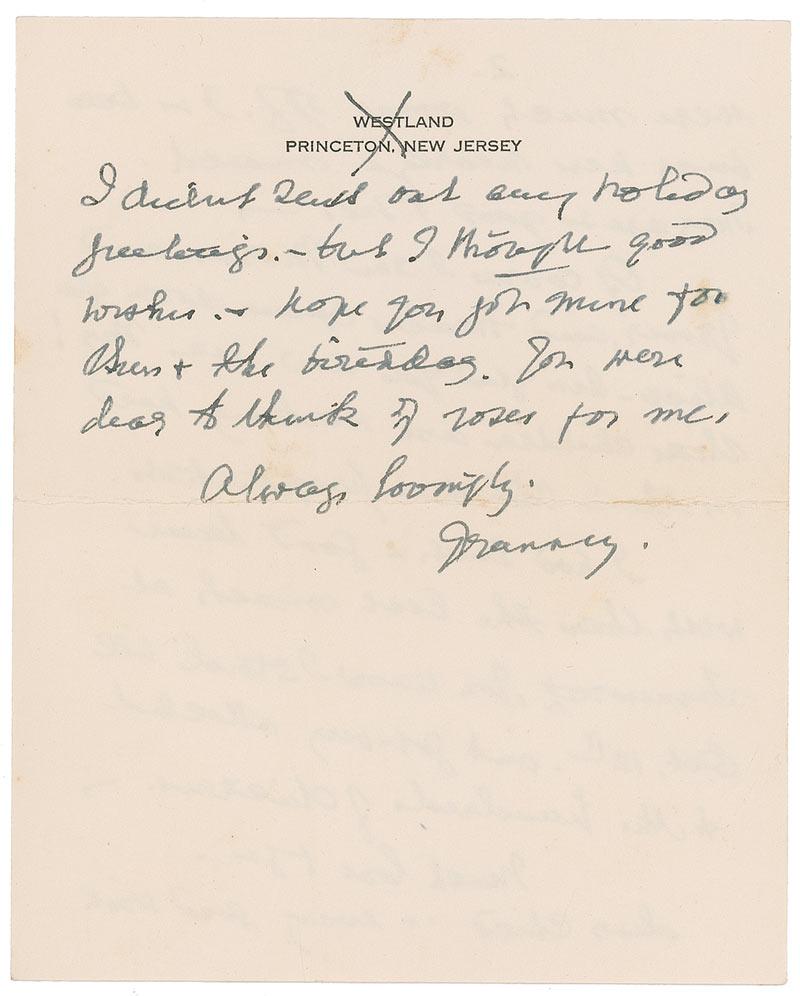 WESTLAND
PRINCETON, NEW JERSEY
I didn't send out any holiday
greetings. – but I thought good
wishes. – hope you got mine for
then + the birthday. You were
dear to think of roses for me.
Always lovingly.